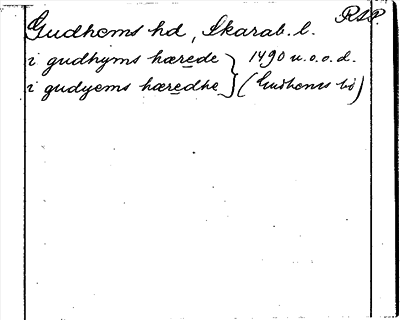 RAP.
Gudhems hd, Skarab. l.
i gudhyms hærede } 1490 u.o.o.d.
i gudyems hæredhe } (Gudhems bö)